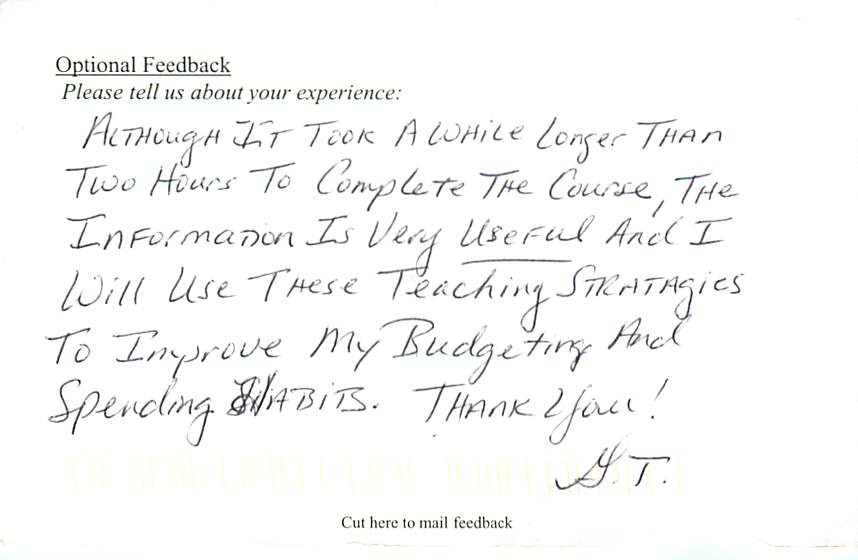 Optional Feedback
Please tell us about your experience:
ALTHOUGH IT TOOK A WHILE LONGER THAN
TWO HOURS TO COMPLETE THE COURSE, THE
INFORMATION IS VERY USEFUL AND I
WILL USE THESE TEACHING STRATAGIES
TO IMPROVE MY BUDGETING AND
SPENDING HABITS. THANK YOU!
G.T.
Cut here to mail feedback